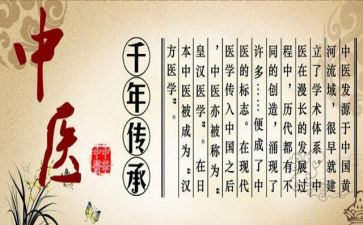 中医
千年传承
中医发源于中国黄
河流域，很早就建
立了学术体系。中
医在漫长的发展过
程中，历代都有不
同的创造，涌现了
许多……便成了中
医的标志。在现代
医学传入中国之后
，中医亦被称为“
皇汉医学”。在日
本中医被成为“汉
方医学”。